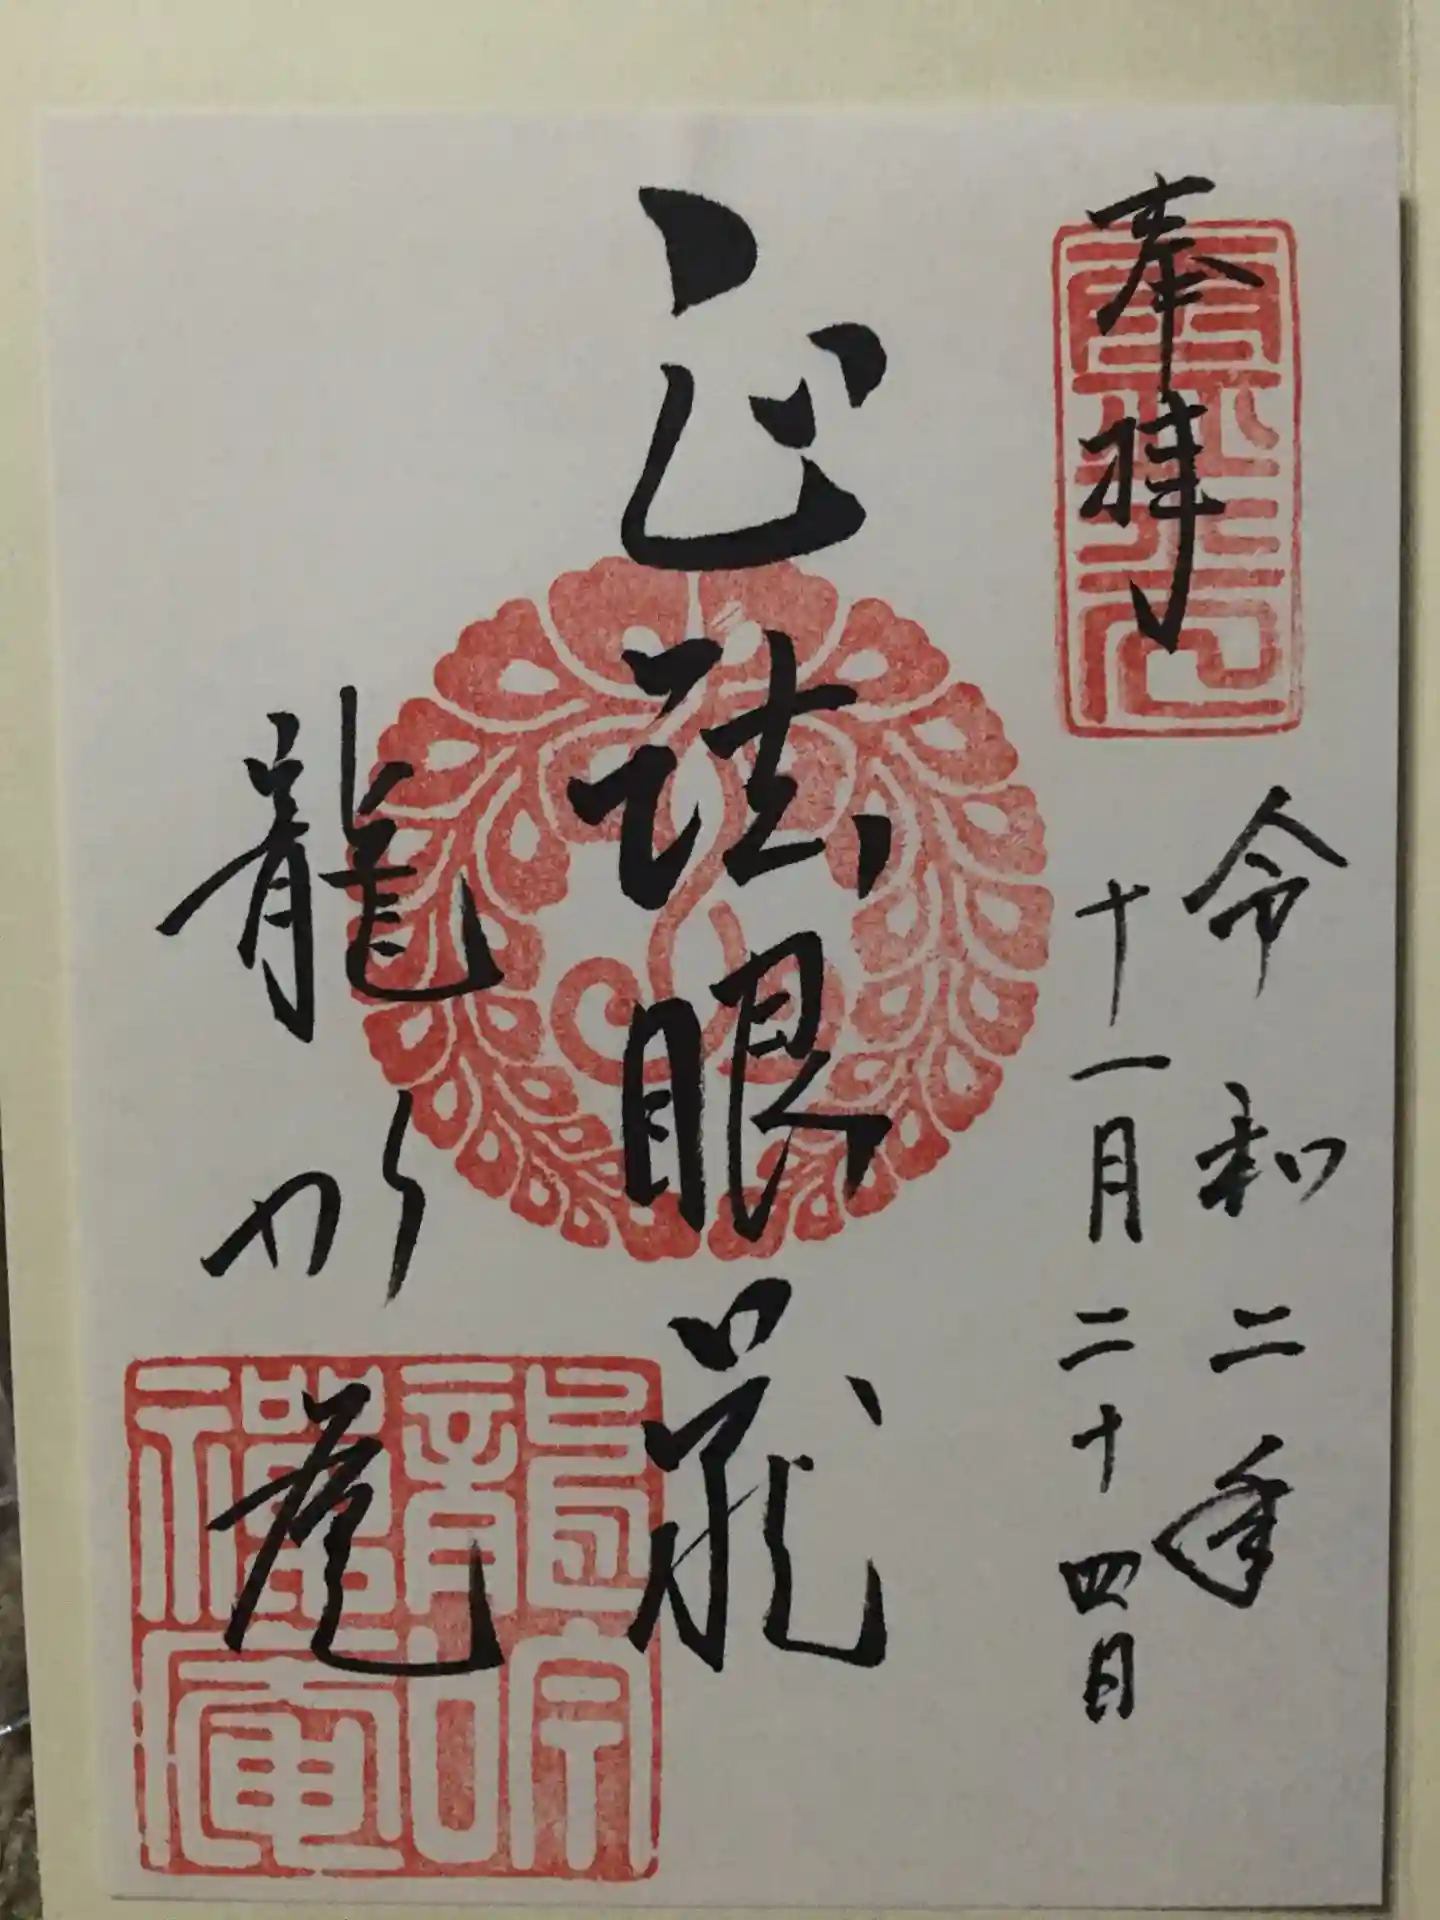 奉拝
令和二年
十一月二十四日
正法眼蔵
龍吟庵
龍吟
禪庵